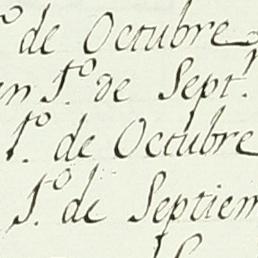 º de Octubre
en 1.º de Sept.
1.º de Octubre
1.º de Septiem